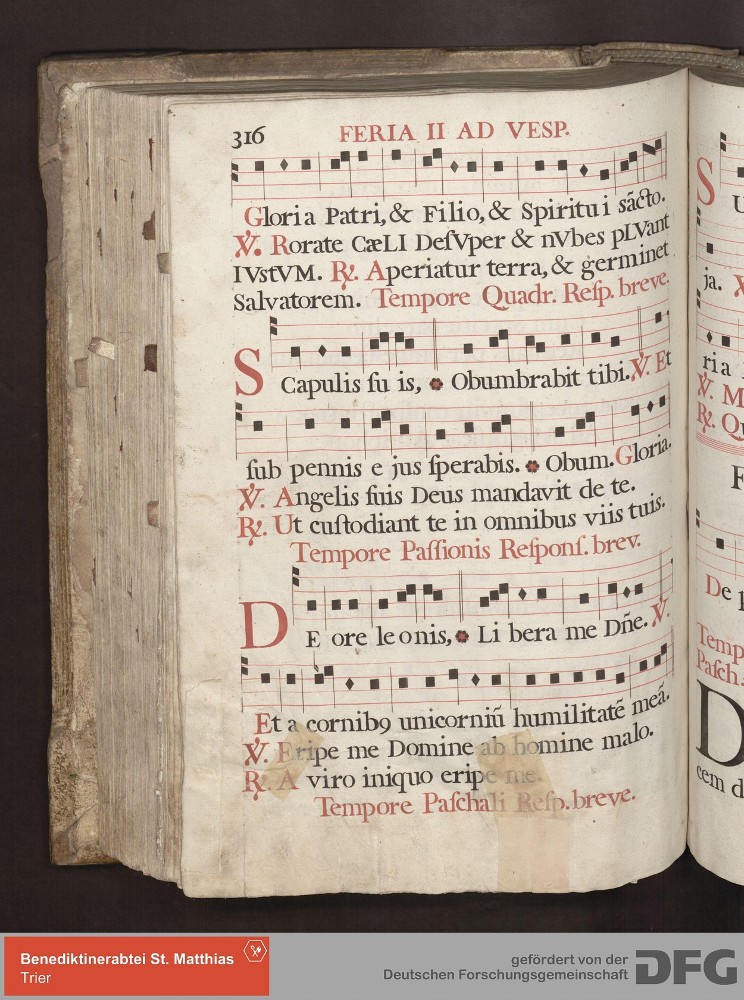 316 FERIA II AD VESP.
Gloria Patri, & Filio, & Spiritui sãcto.
℣. Rorate CæLI DeſVper & nVbes pLVant
IVstVM. ℟. Aperiatur terra, & germinet
Salvatorem. Tempore Quadr. Reſp. breve.
S Capulis ſu is, Obumbrabit tibi. ℣. Et
ſub pennis e jus ſperabis. Obum. Gloria.
℣. Angelis ſuis Deus mandavit de te.
℟. Ut cuſtodiant te in omnibus viis tuis.
Tempore Paſſionis Reſponſ. brev.
D E ore leonis, Li bera me Dñe. ℣.
Et a cornibꝯ unicorniũ humilitatẽ meã.
℣. Eripe me Domine ab homine malo.
℟. A viro iniquo eripe me.
Tempore Paſchali Reſp. breve.
S
U
ja.
ria
℣. M
℟. Qu
F
De
Temp
Paſch.
D
cem d
Benediktinerabtei St. Matthias
Trier
gefördert von der
Deutschen Forschungsgemeinschaft
DFG